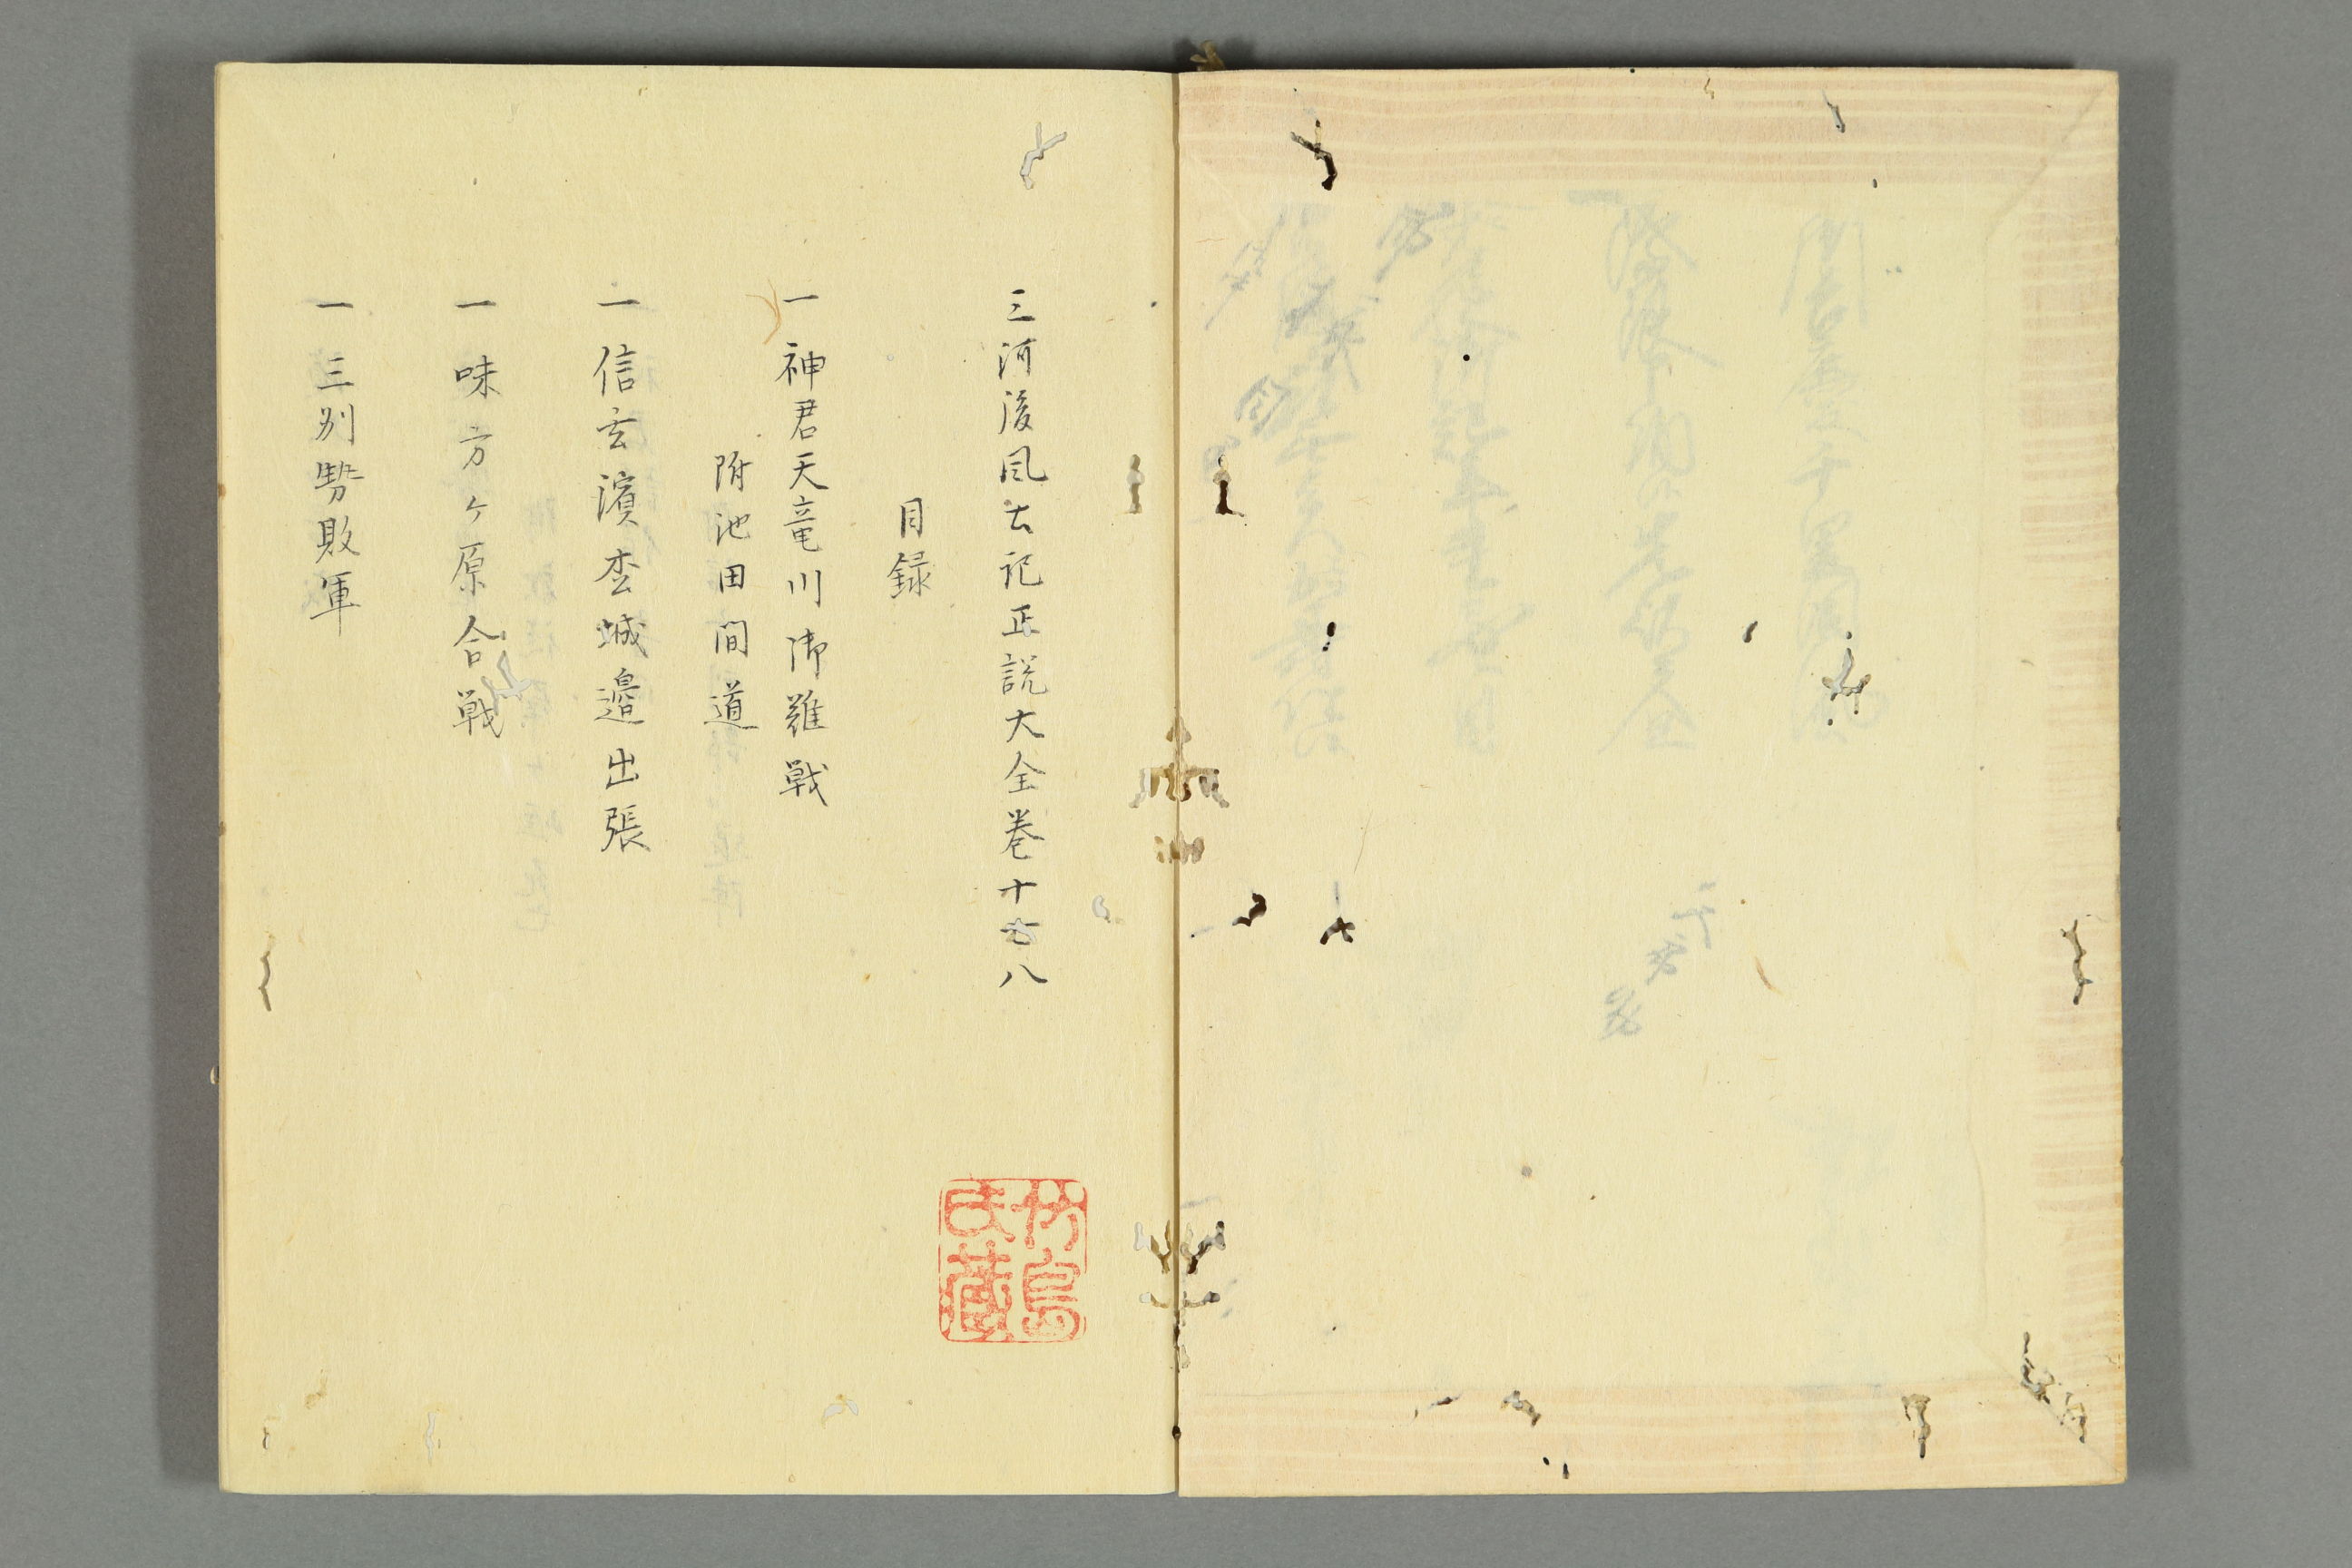 三河後風土記正説大全巻十八
目録
一神君天竜川御難戦
附池田間道
一信玄濱松城邉出張
一味方ヶ原合戦
一三刕勢敗軍
竹島
氏蔵